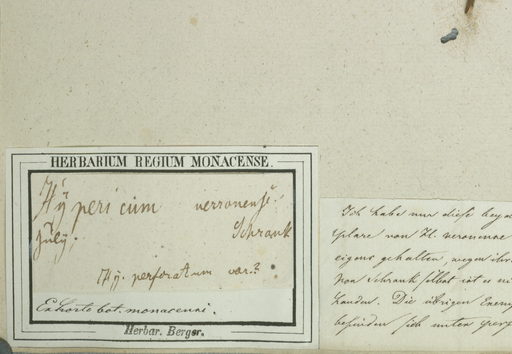 HERBARIUM REGIUM MONACENSE.
Hÿpericum verronense.
Schrank
July.
Hÿ. perforatum var.?
Ex horto bot. monacensi.
Herbar. Berger.
Ich habe nur diese
plare von H. veronense
eigens gehalten, wegen ihr
von Schrank selbst ist
handen. Die übrigen Exemp
befinden sich unter perf